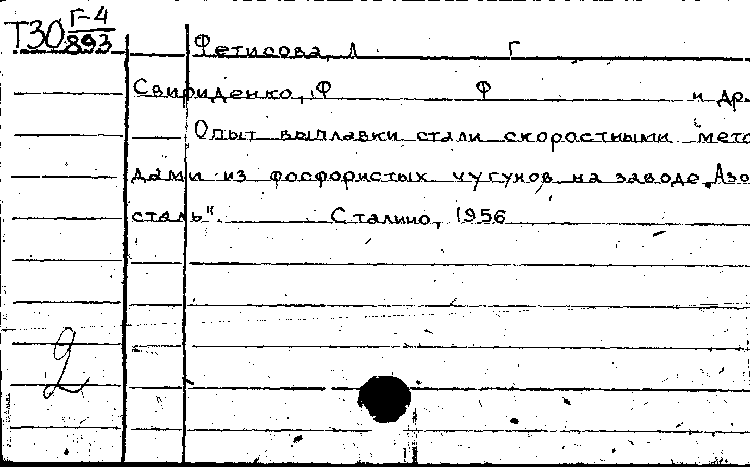 Т30 Г-4
893
Фетисова, Л Г
Свириденко, Ф Ф и др.
Опыт выплавки стали скоростными мето
дами из фосфористых чугунов на заводе „Азов
сталь". Сталино, 1956
2